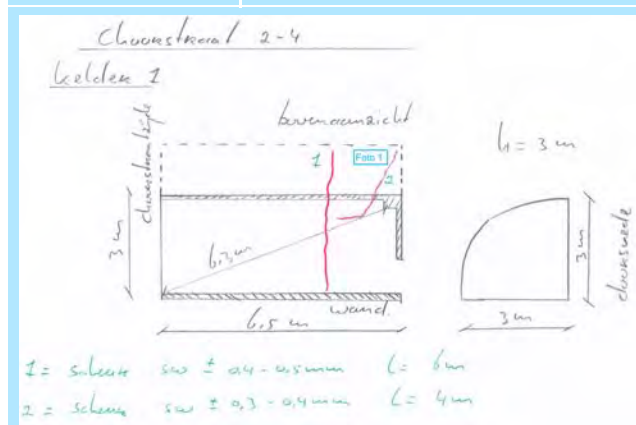 Choorstraat 2-4
kelder 1
bovenaanzicht
choorstraatzijde
1
Foto 1
2
h = 3 m
3 m
6,3 m
wand.
6,5 m
3 m
3 m
doorsnede
1 = scheur sw ± 0,4 - 0,5 mm l = 6 m
2 = scheur sw ± 0,3 - 0,4 mm l = 4 m